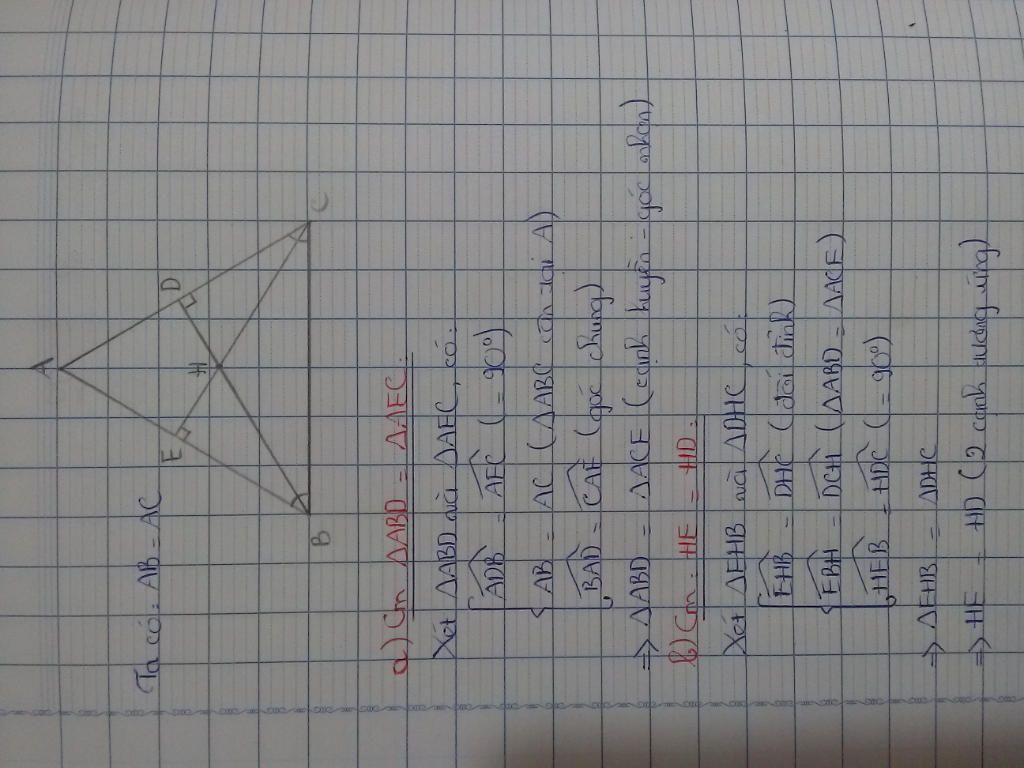 A
E
D
H
B
C
Ta có: AB = AC
a) Cm ΔABD = ΔAEC:
Xét ΔABD và ΔAEC, có:
ADB = AEC (= 90°)
AB = AC (ΔABC cân tại A)
BAD = CAE (góc chung)
=> ΔABD = ΔACE (cạnh huyền - góc nhọn)
b) Cm: HE = HD:
Xét ΔEHB và ΔDHC, có:
EHB = DHC (đối đỉnh)
EBH = DCH (ΔABD = ΔACE)
HEB = HDC (= 90°)
=> ΔEHB = ΔDHC
=> HE = HD (2 cạnh tương ứng)